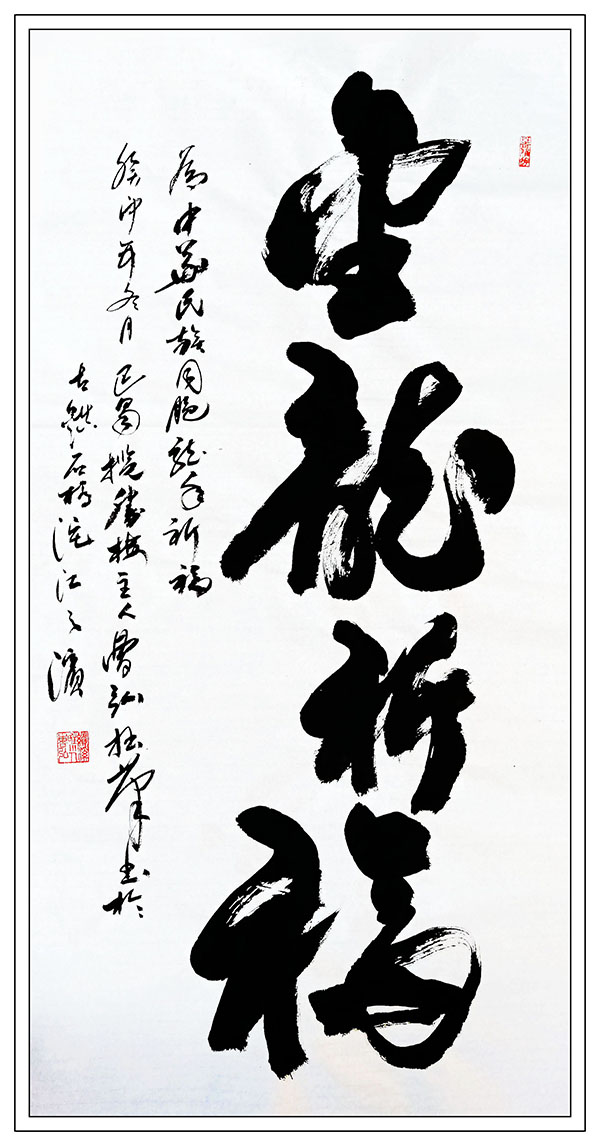 龍祈福
為中華民族同胞龍年祈福
癸卯年冬月 巴蜀攬勝樓主人曾弘拙筆書於
古石橋沱江之濱